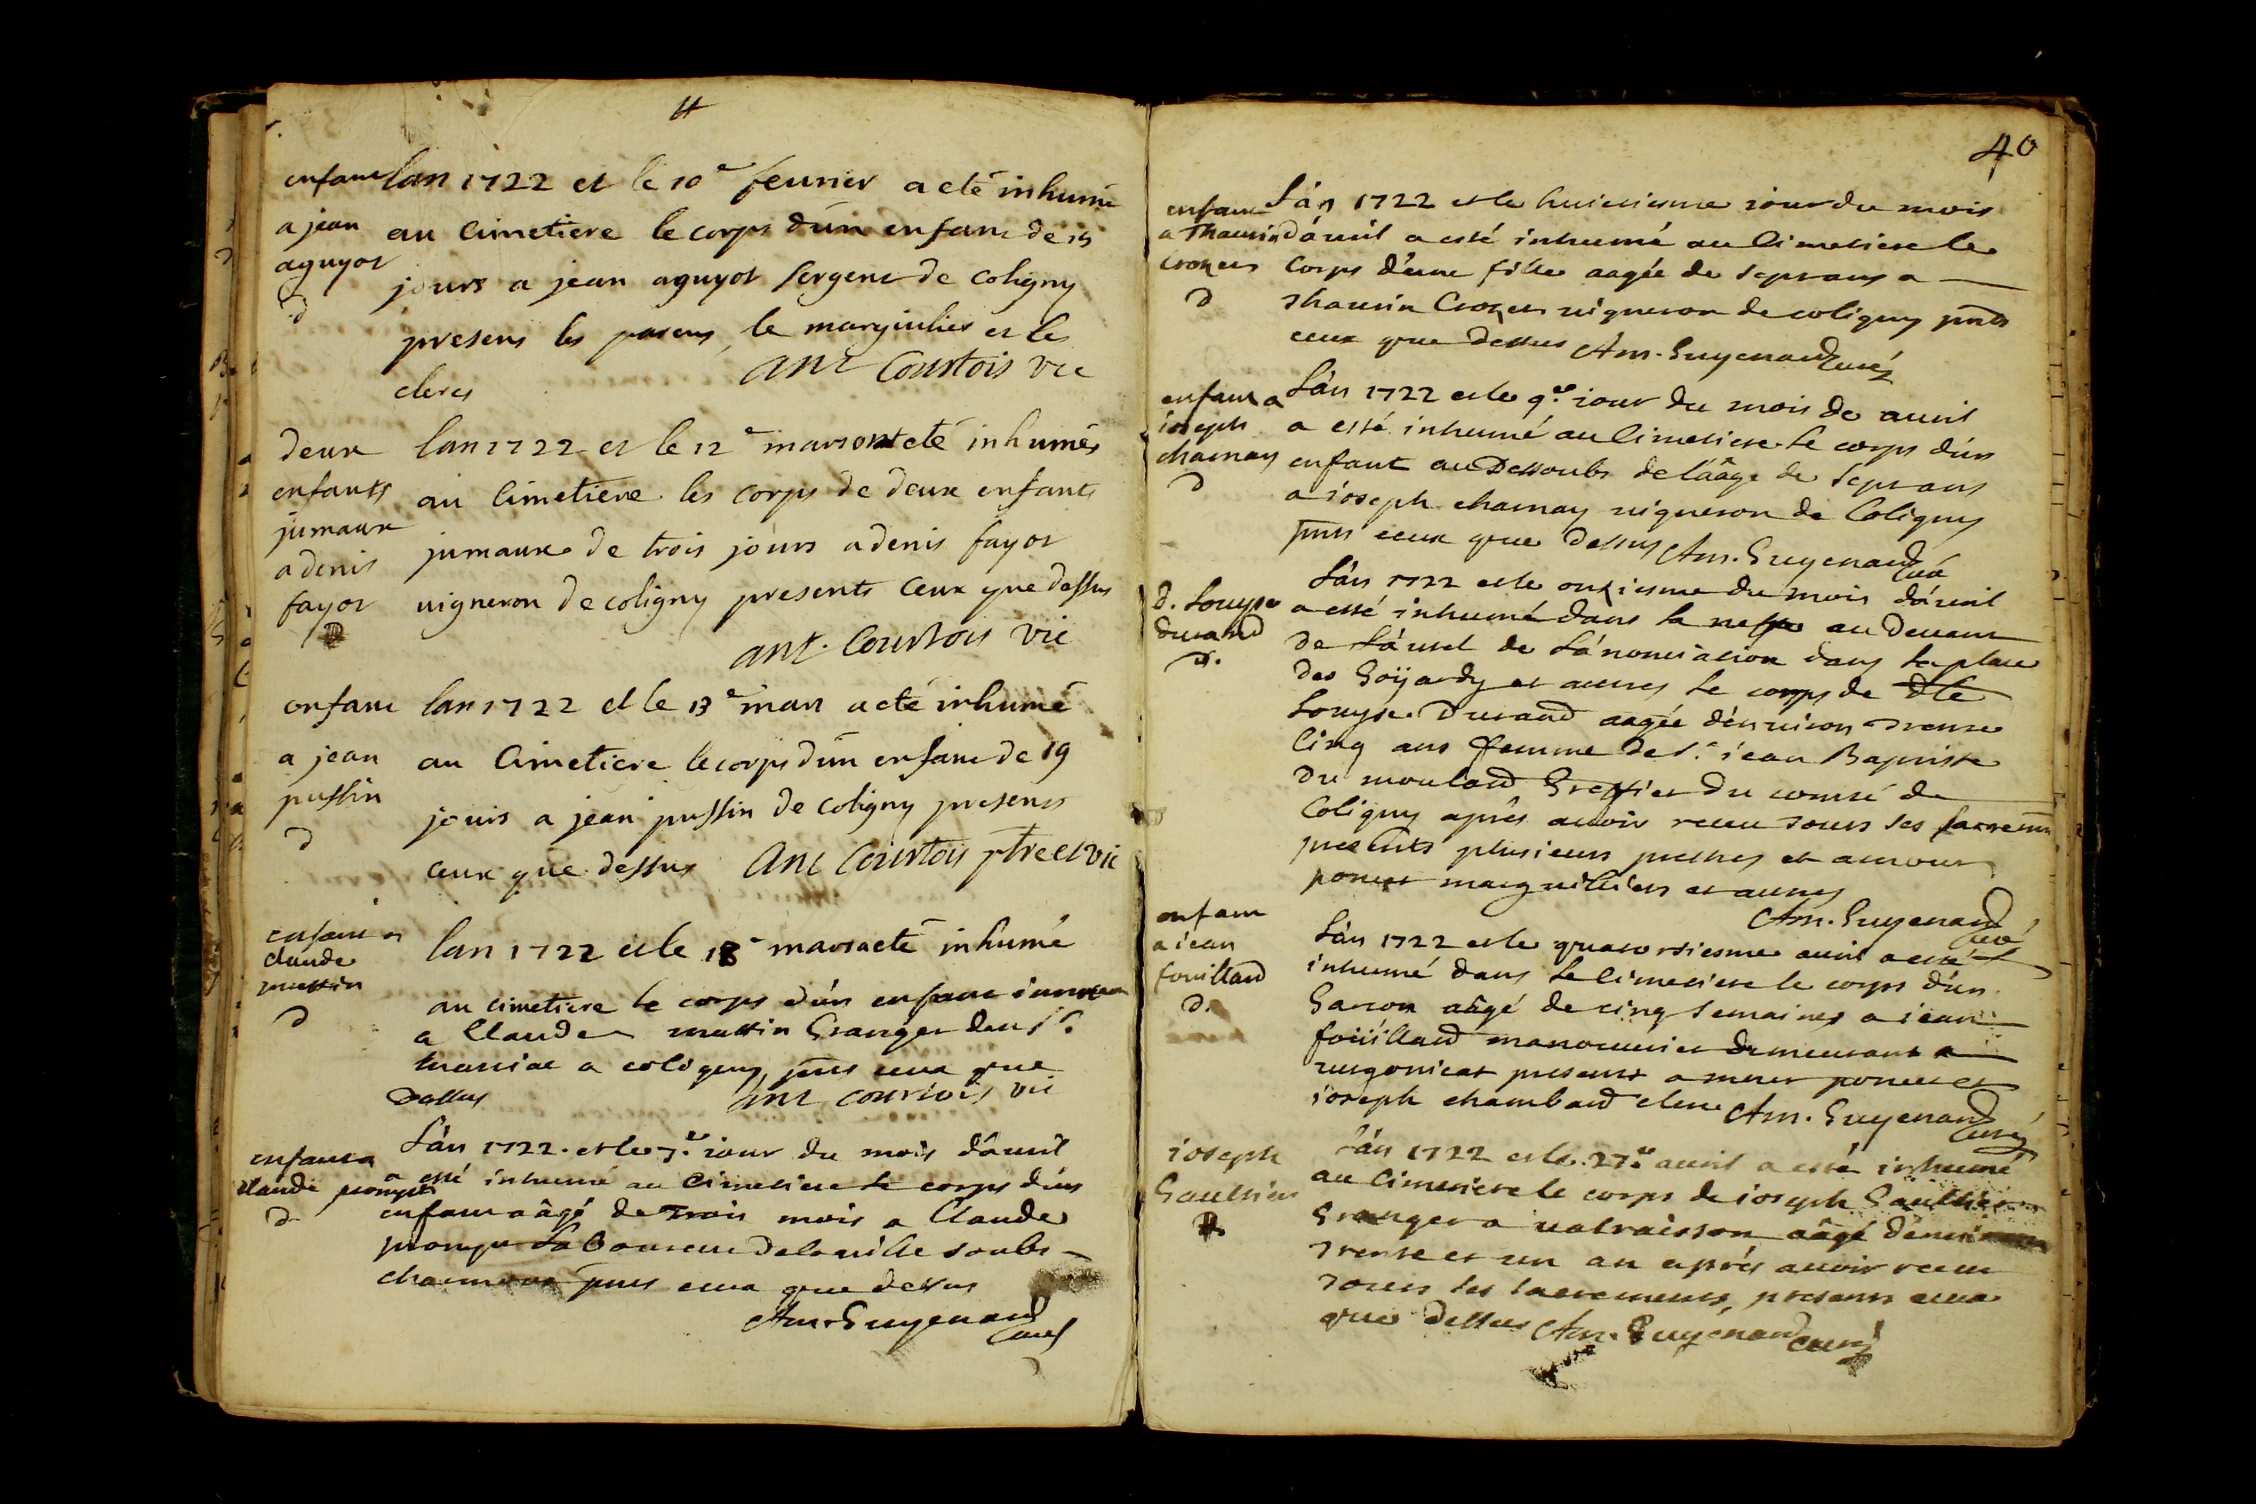 enfant
a jean
aguyot
d
lan 1722 et le 10e feurier a eté inhumé
au Cimetiere le corps d'un enfant de 15
jours a jean aguyot sergent de coligny
presens les parens, le marguilier et les
clercs
ant Courtois vic
deux
enfants
jumaux
a denis
fayot
D
lan 1722 et le 12e mars ont eté inhumés
au Cimetiere les corps de deux enfants
jumaux de trois jours a denis fayot
uigneron de coligny presents Ceux que dessus
ant. Courtois vic
enfant
a jean
pussin
d
lan 1722 et le 13e mars a eté inhumé
au Cimetiere le corps d'un enfant de 19
jours a jean pussin de Coligny presens
ceux que dessus ant Courtois ptre et vic
enfant a
claude
mattin
d
lan 1722 et le 18e mars a eté inhumé
au cimetiere le corps d'un enfant
a Claude mattin Granger du sr.
a coligny, pnts ceux que
dessus
ant courtois vic
enfant a
claude prompt
d
L'an 1722. et le 7e. iour du mois d'auril
a esté inhumé au Cimetiere le corps d'un
enfant aâgé de Trois mois a Claude
prompt Laboureur de la uille soubs
pnts ceux que dessus
Am. Guyenard
Curé
40
enfant
a Thauuin
crozet
d
L'an 1722 et le huictiesme iour du mois
d'auril a esté inhumé au Cimetiere le
Corps d'une fille aagée de sept ans a
Thauuin Crozet uigneron de coligny pnts
ceux que dessus Am. Guyenard Curé
enfant a
ioseph
charnay
d
L'an 1722 et le 9e. iour du mois de auril
a esté inhumé au Cimetiere le corps d'un
enfant au Dessoubs de l'aâge de sept ans
a ioseph charnay uigneron de Coligny
pnts ceux que dessus Am. Guyenard
Curé
d. Louyse
durand
d.
L'an 1722 et le onziesme du mois d'auril
a esté inhumé dans la neffe au deuant
de L'autel de L'anonciation dans la place
des Goÿardz et autres le corps de dlle
Louyse Durand aagée d'enuiron Trente
Cinq ans femme de sr. iean Baptiste
Du moulard Greffier du comté de
Coligny aprés auoir receu Tous ses sacremts
presents plusieurs prestres et amour
poncet marguilliers et autres
Am. Guyenard
Curé
enfant
a iean
fouillard
d.
L'an 1722 et le quatorsiesme auril a esté
inhumé dans le Cimetiere le corps d'un
Garcon aâgé de cinq semaines a iean
foüillard manouurier demeurant a
presents amour poncet et
ioseph chambard clerc Am. Guyenard
Curé
ioseph
Gaulthier
D
L'an 1722 et le 27e. auril a esté inhumé
au Cimetiere le corps de ioseph Gaulthier
Granger a ualraisson aâgé d'enuiron
Trente et un an aprés auoir receu
Tous les sacrements, presents ceux
que dessus Am. Guyenard Curé